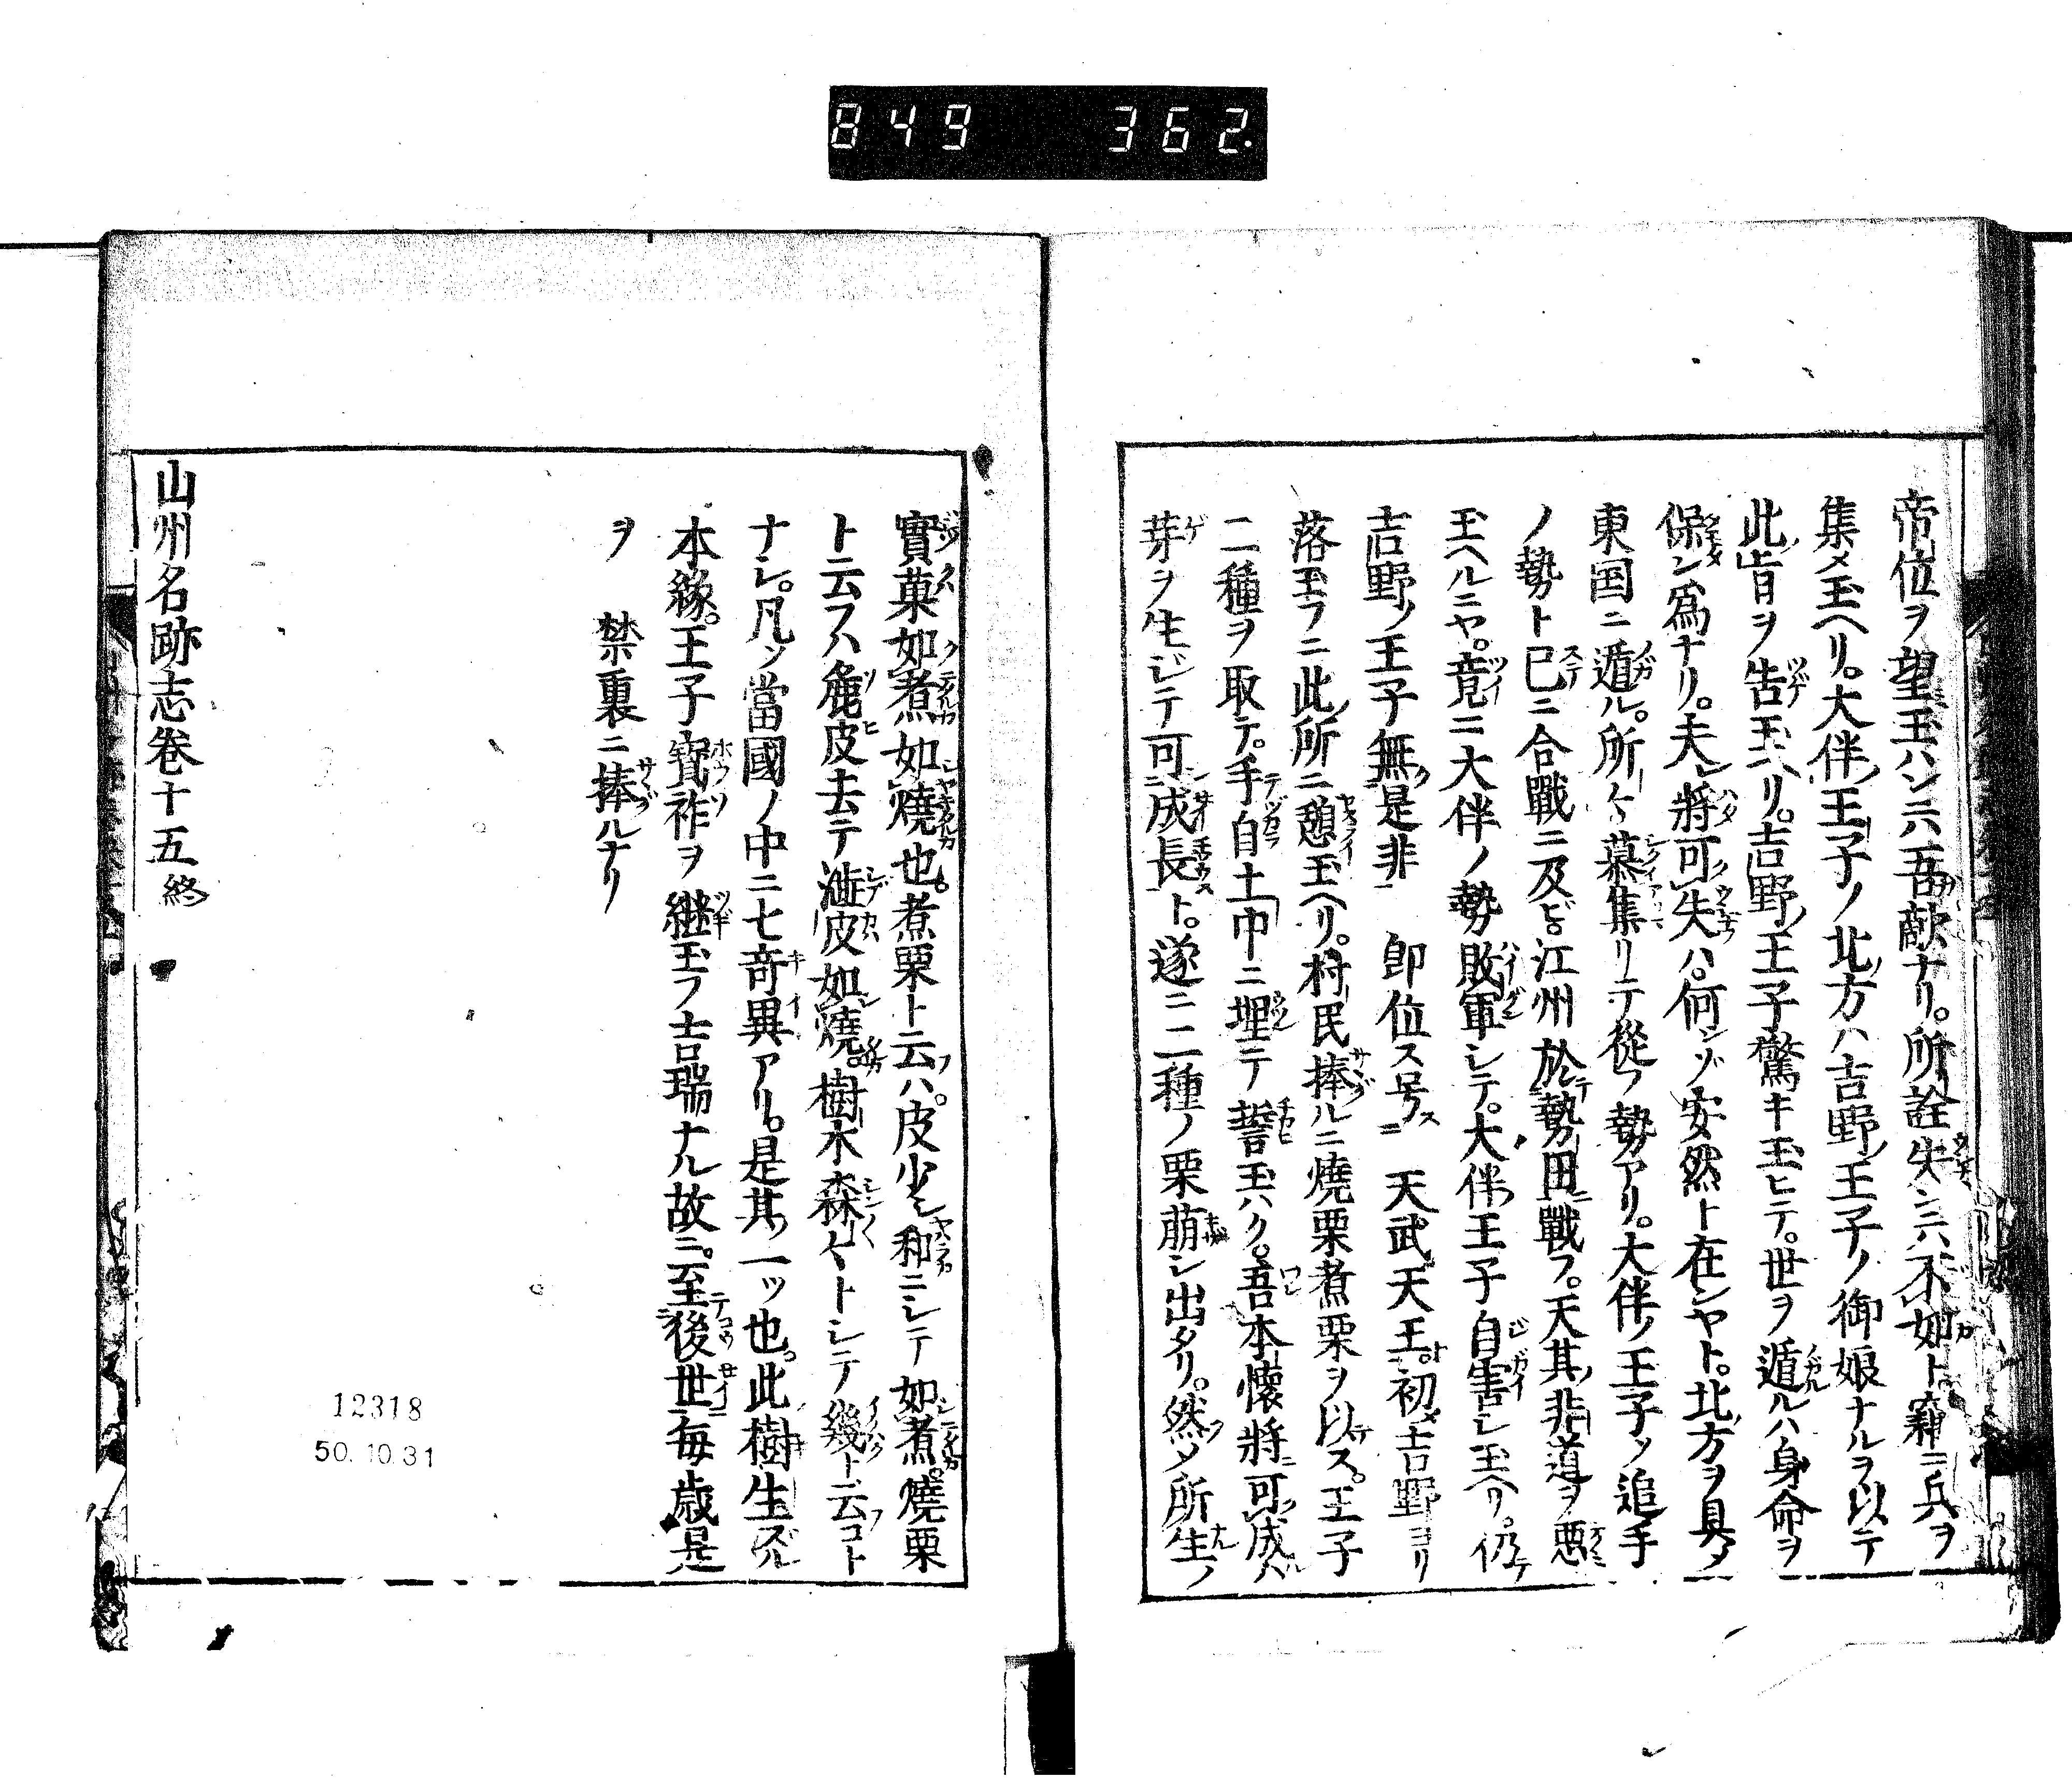 849 362.
帝位ヲ望玉ハンニハ吾敵ナリ。所詮失ンニハ不如ト。竊ニ兵ヲ
集メ玉ヘリ。大伴ノ王子ノ北方ハ吉野ノ王子ノ御娘ナルヲ以テ
此旨ヲ告玉ヘリ。吉野ノ王子驚キ玉ヒテ。世ヲ遁ルハ身命ヲ
保ン為ナリ。夫レ将可失ハ。何ンゾ安然ト在ンヤト。北方ヲ具メ
東国ニ遁ル。所々慕集リテ從フ勢アリ。大伴ノ王子ノ追手
ノ勢ト已ニ合戰ニ及ビ。江州於勢田戰フ。天其ノ非道ヲ悪
玉ヘルニヤ。竟ニ大伴ノ勢敗軍シテ。大伴王子自害シ玉ヘリ。仍テ
吉野ノ王子無是非 即位ス号ス 天武天王。初メ吉野ヨリ
落玉フニ此所ニ憩玉ヘリ。村民捧ルニ燒栗煮栗ヲ以ス。王子
二種ヲ取テ。手自土中ニ埋テ誓玉ハク。吾本懐將可成ハ
芽ヲ生ジテ可成長ト。遂ニ二種ノ栗萠シ出タリ。然メ所生ノ
實菓如煮如燒也。煮栗ト云ハ。皮少シ和ニシテ如煮。燒栗
ト云フハ麁皮去テ澁皮如燒。樹木森々トシテ幾ト云コト
ナシ。凡ソ當國ノ中ニ七奇異アリ。是其ノ一ッ也。此樹生ズル
本縁。王子寶祚ヲ継玉フ吉瑞ナル故ニ。至後世毎歳是
ヲ 禁裏ニ捧ルナリ
山州名跡志巻十五終
12318
50.10.31